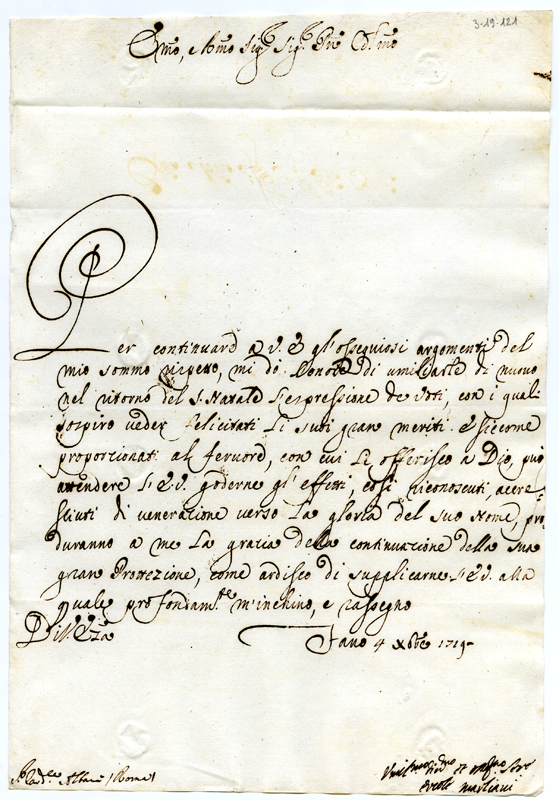 3-19-121
Emo, e Rmo Sigr Sigr Prõe Colmo
Per continuare a V. E. gl'ossequiosi argomenti del
mio sommo rispetto, mi do l'onore di umiliarle di nuovo
nel ritorno del S. Natale l'espressione de voti, con i quali
sospiro veder felicitati li suoi gran meriti. E siccome
proporzionati al fervore, con cui li offerisco a Dio, può
attendere l'E.V. goderne gl'effetti, così riconosciuti, accre=
sciuti di venerazione verso la gloria del suo Nome, pro
duranno a me la grazia della continuazione della sua
gran Protezione, come ardisco di supplicarne l'E.V. alla
quale profondamte m'inchino, e rassegno
Di V. Eza
Fano 4 Xbre 1719
Sr Cardle Albani (Roma)
Umilmo Servre
Ercole Marliani